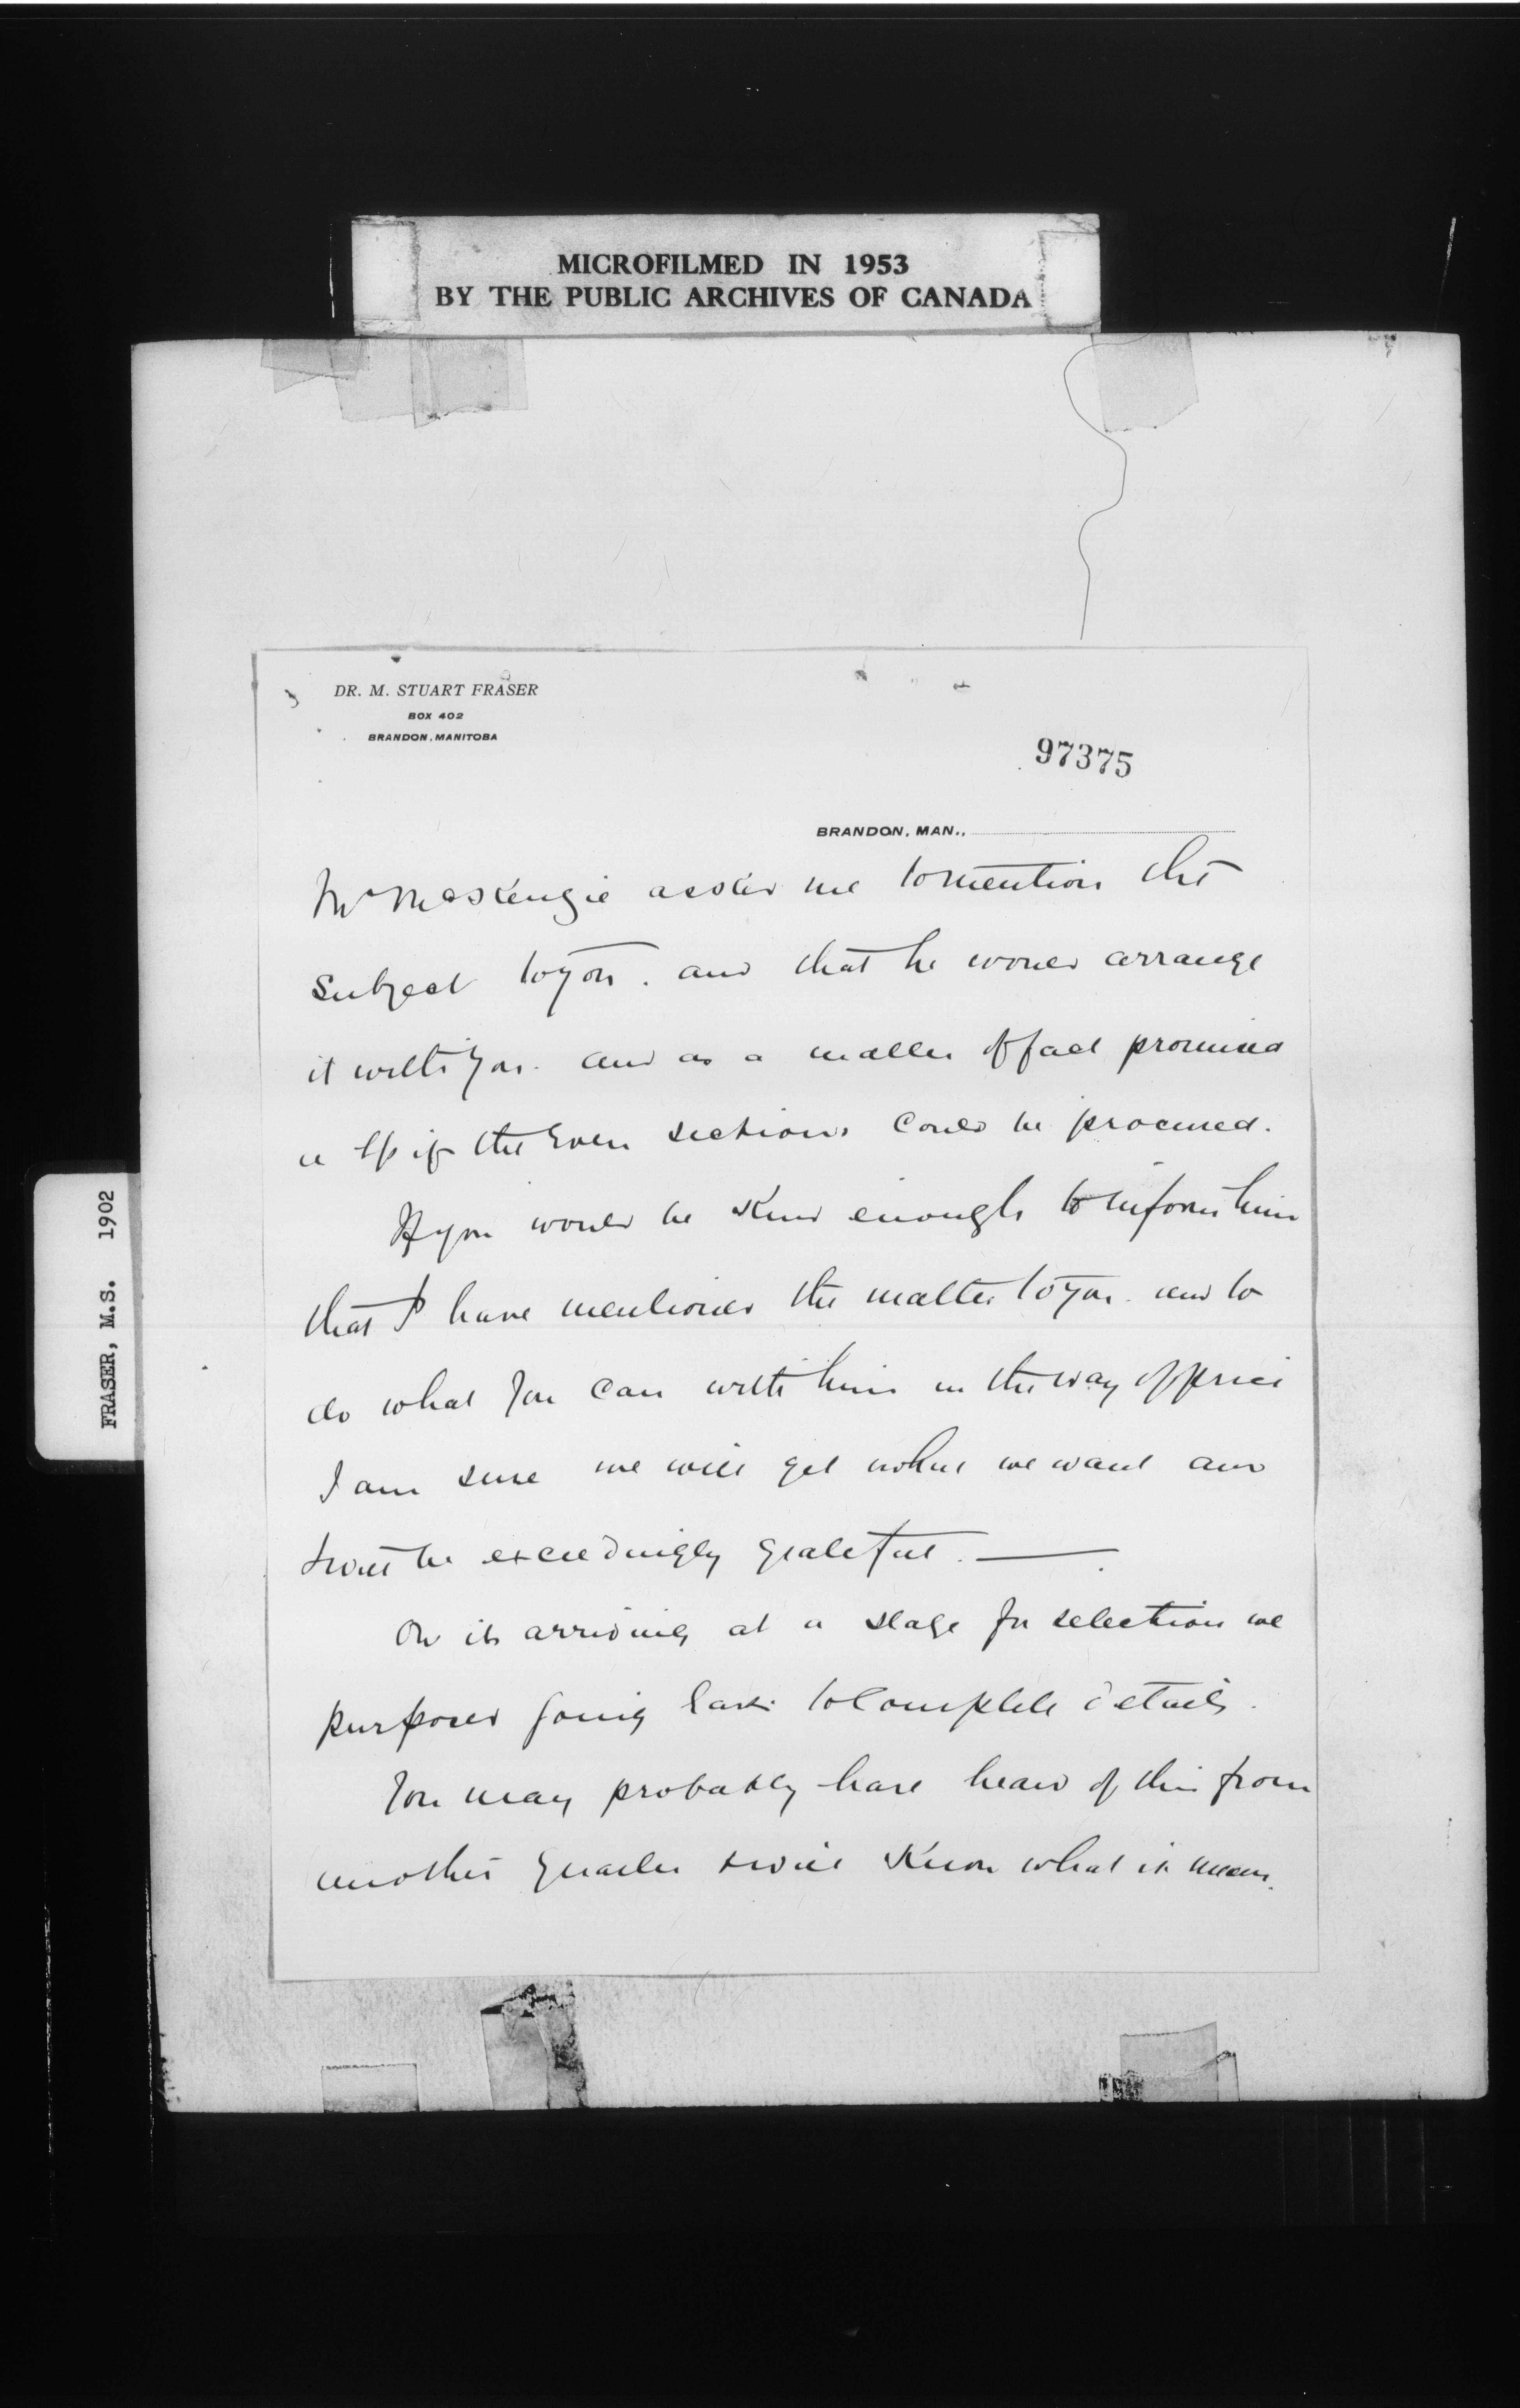 MICROFILMED IN 1953
BY THE PUBLIC ARCHIVES OF CANADA
DR. M. STUART FRASER
BOX 402
BRANDON, MANITOBA
97375
BRANDON, MAN.,
Mr McKenzie asked me to mention the
subject to you. and that he would arrange
it with you. and as a matter of fact promised
it if the Even sections could be procured.
If you would be kind enough to inform him
that I have mentioned the matter to you. and to
do what you can with him in the way of price
I am sure we will get what we want and
will be exceedingly grateful. —
On its arriving at a stage for selection we
purposed going East to Complete details.
You may probably have heard of this from
another quarter & will know what it means.
FRASER, M.S. 1902